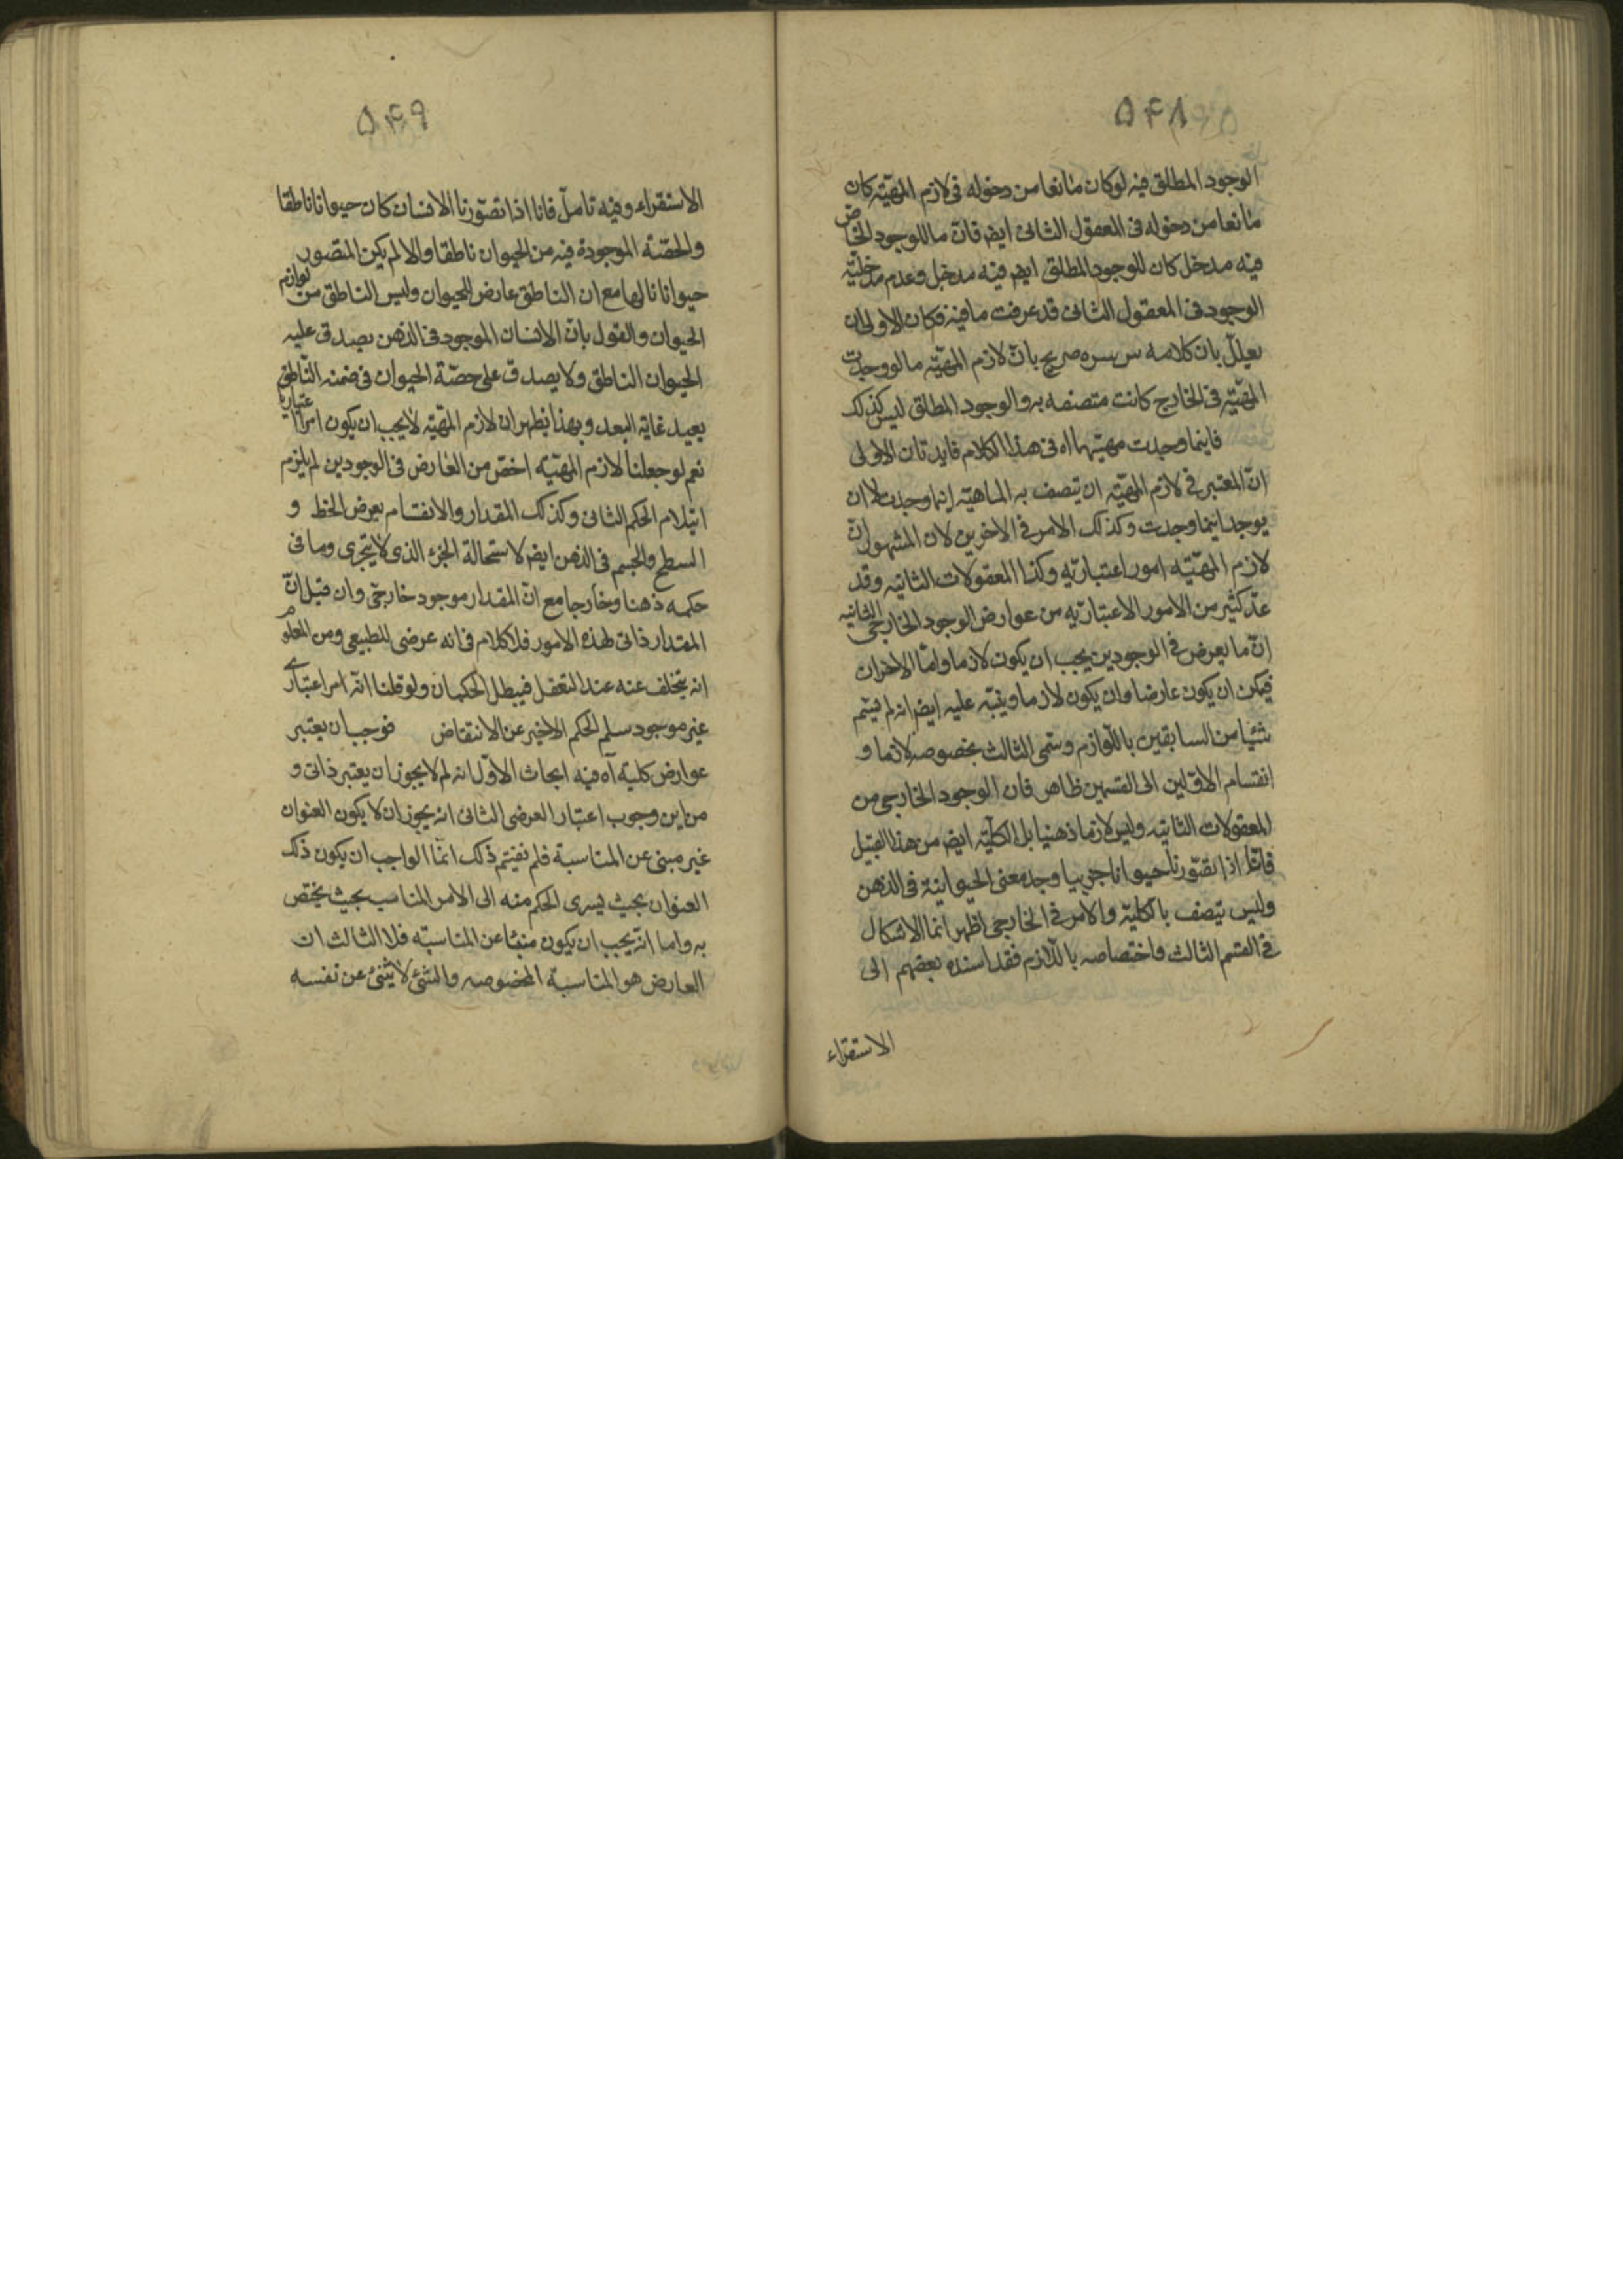 ۵۴۸
الوجود المطلق فيه لو كان مانعا من دخوله فى لازم المهيّة كان
مانعا من دخوله فى المعقول الثانى ايضا فان ما للوجود الخاص
فيه مدخل كان للوجود المطلق ايضا فيه مدخل وعدم مدخليّة
الوجود فى المعقول الثانى قد عرفت ما فيه فكان الاولى ان
يعلل بان كلامه س سره صريح بانّ لازم المهيّة ما لو وجدت
المهيّة فى الخارج كانت متصفه به والوجود المطلق ليس كذلك
فاينما وجدت مهيتها اه فى هذا الكلام فايدتان الاولى
انّ المعتبر فى لازم المهيّة ان يتصف به الماهية اينما وجدت لا ان
يوجد اينما وجدت وكذلك الامر فى الاخرين لان المشهور انّ
لازم المهيّة امور اعتباريه وكذا المعقولات الثانيه وقد
عدّ كثير من الامور الاعتباريه من عوارض الوجود الخارجى الثانيه
انّ ما يعرض فى الوجودين يجب ان يكون لازما وامّا الاخران
فيمكن ان يكون عارضا وان يكون لازما وينبّه عليه ايضا انه لم يسم
شيئا من السابقين باللوازم وسمّى الثالث بخصوصه لازما و
انقسام الاوّلين الى القسمين ظاهر فان الوجود الخارجى من
المعقولات الثانيه وليس لازما ذهنيا بل الكليّة ايضا من هذا القبيل
فانّا اذا تصوّرنا حيوانا جزييا وجد معنى الحيوانية فى الذهن
وليس يتصف بالكليّة والامر فى الخارجى اظهر انما الاشكال
فى القسم الثالث واختصاصه باللازم فقد اسنده بعضهم الى
الاستقراء
۵۴۹
الاستقراء وفيه تامل فانا اذا تصوّرنا الانسان كان حيوانا ناطقا
والحصّة الموجودة فيه من الحيوان ناطقا والا لم يكن المتصور
حيوانا ناطقا مع ان الناطق عارض للحيوان وليس الناطق من لوازم
الحيوان والقول بانّ الانسان الموجود فى الذهن يصدق عليه
الحيوان الناطق ولا يصدق على حصّة الحيوان فى ضمنه النّاطق
بعيد غاية البعد وبهذا يظهر ان لازم المهيّة لا يجب ان يكون امرا اعتباريا
نعم لو جعلنا لازم المهيّة اخصّ من العارض فى الوجودين لم يلزم
انثلام الحكم الثانى وكذلك المقدار والانقسام يعرض الخط و
السطح والجسم فى الذهن ايضا لاستحالة الجزء الذى لا يتجزى وما فى
حكمه ذهنا وخارجا مع انّ المقدار موجود خارجى وان قيل انّ
المقدار ذاتى لهذه الامور فلا كلام فى انه عرضى للطبيعى ومن المعلوم
انه يتخلف عنه عند التعقل فيبطل الحكمان ولو قلنا انّه امر اعتبارى
غير موجود سلم الحكم الاخير عن الانتقاض فوجب ان يعتبر
عوارض كلية آه فيه ابحاث الاوّل انه لم لا يجوز ان يعتبر ذاتى و
من اين وجوب اعتبار العرضى الثانى انه يجوز ان لا يكون العنوان
غير مبنى عن المناسبة فلم ذلك انّما الواجب ان يكون ذلك
العنوان بحيث يسرى الحكم منه الى الامر المناسب بحيث يختص
به واما انّه يجب ان يكون منبئا عن المناسبّه فلا الثالث ان
العارض هو المناسبة المخصوصه والشئ لا ينبئ عن نفسه